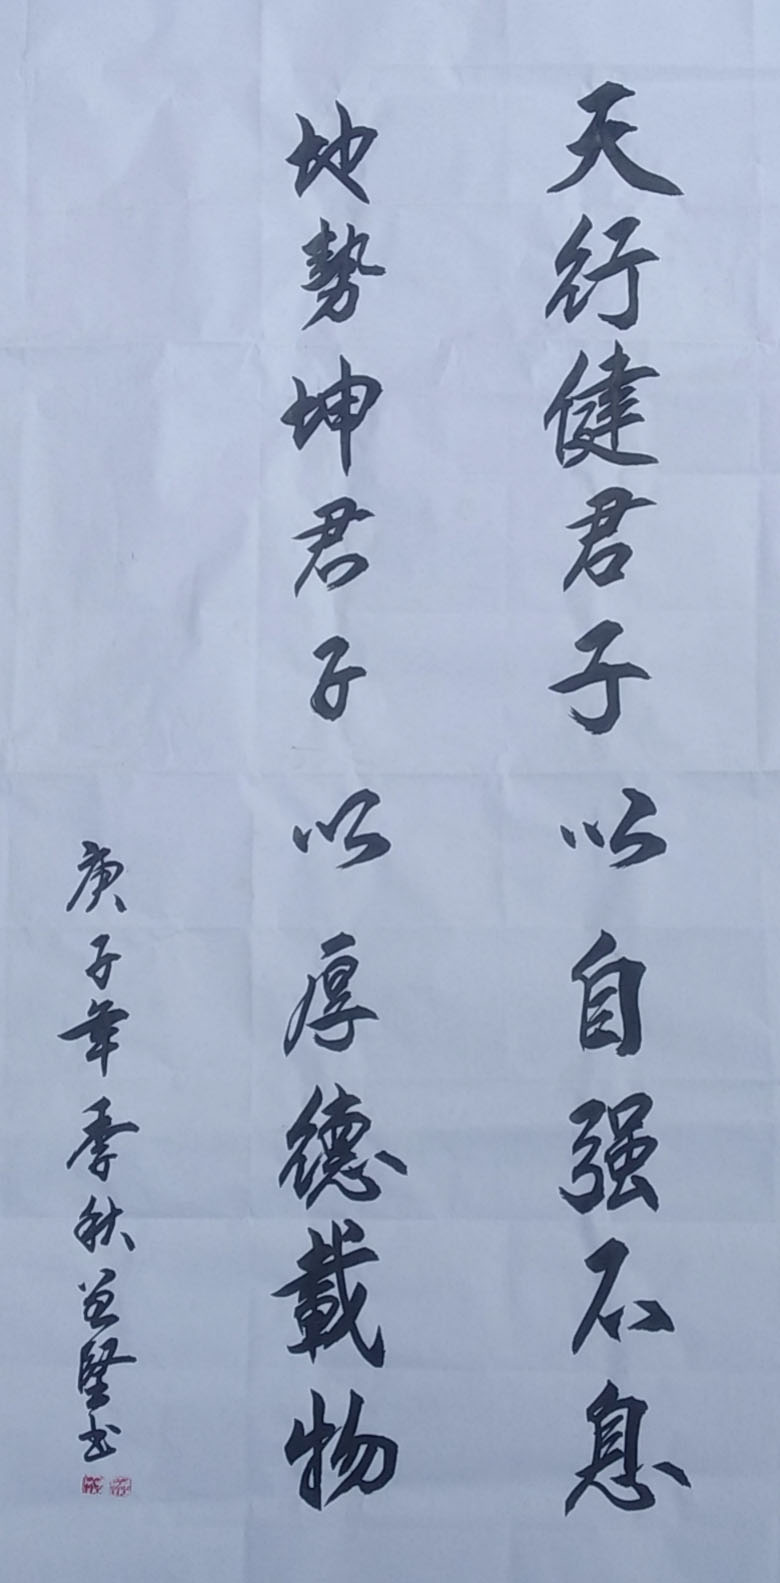 天行健君子以自强不息
地勢坤君子以厚德載物
庚子年季秋益堅书